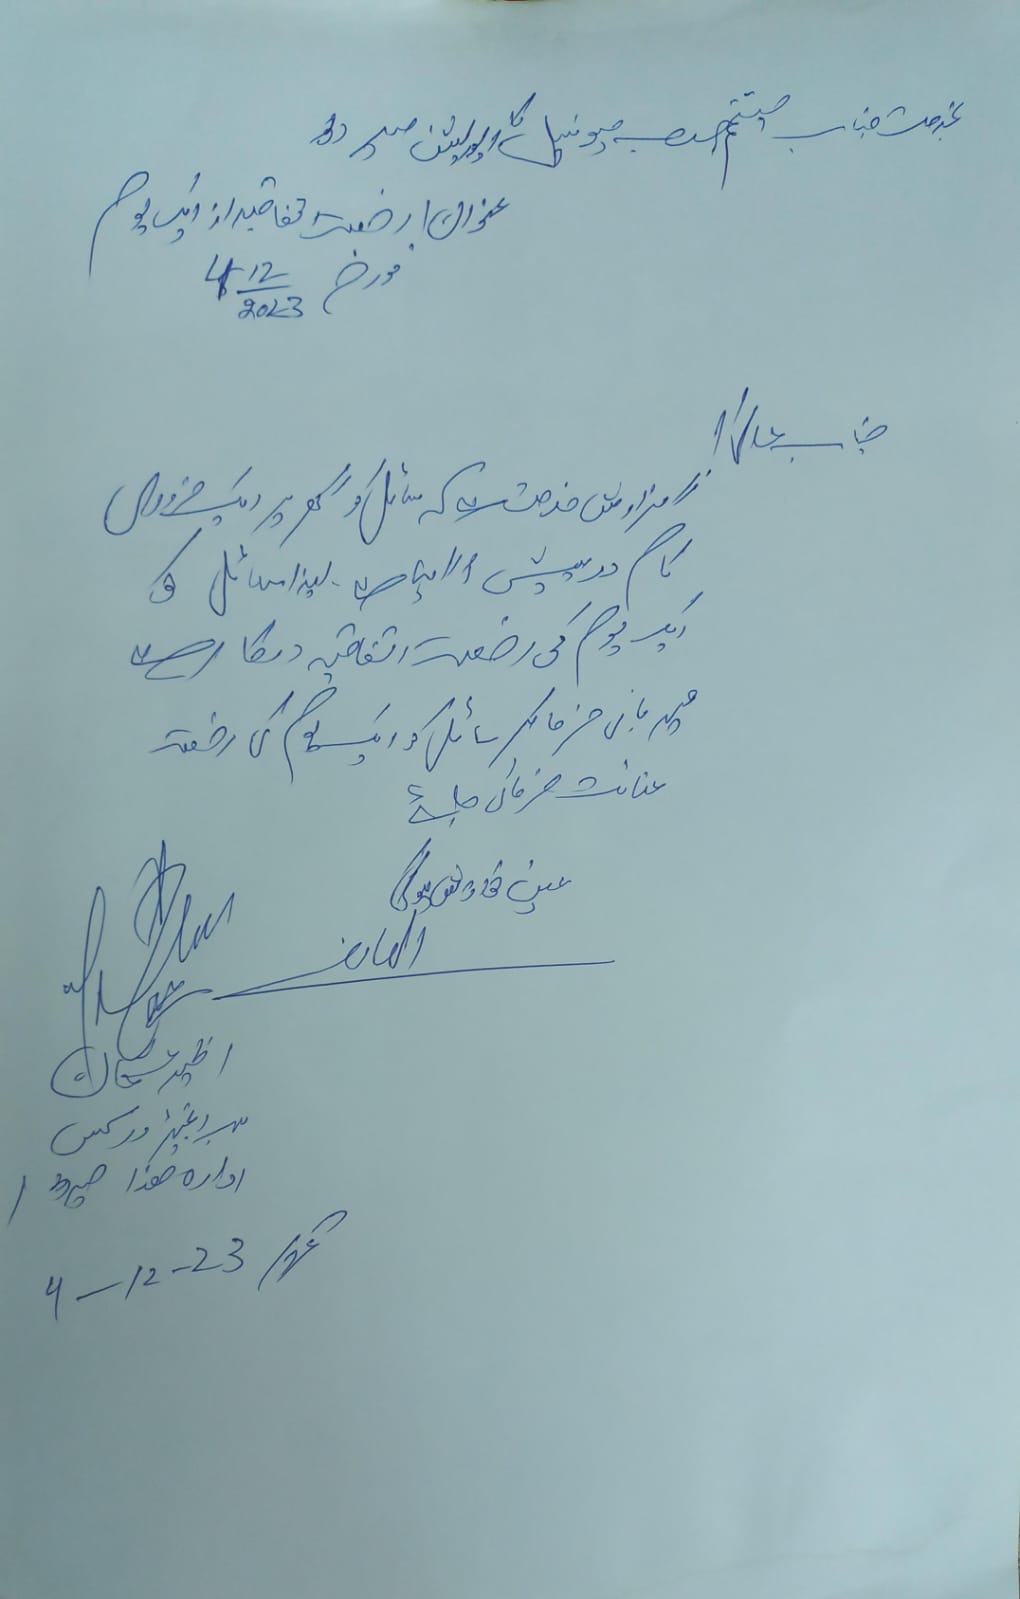 بخدمت جناب مہتمم صاحب میونسپل کارپوریشن میرپور
عنوان / رخصت اتفاقیہ از ایک یوم
مورخہ 4-12/2023
جناب عالی!
گزارش خدمت ہے کہ سائل کو گھر پر ایک ضروری
کام درپیش آ گیا ہے۔ لہذا سائل کو
ایک یوم کی رخصت اتفاقیہ درکار ہے
مہربانی فرما کر سائل کو ایک یوم کی رخصت
عنائت فرمائی جائے
عین نوازش ہوگی
العارض
اظہر
سب انجینئر ورکس
ادارہ ھذا
4-12-23